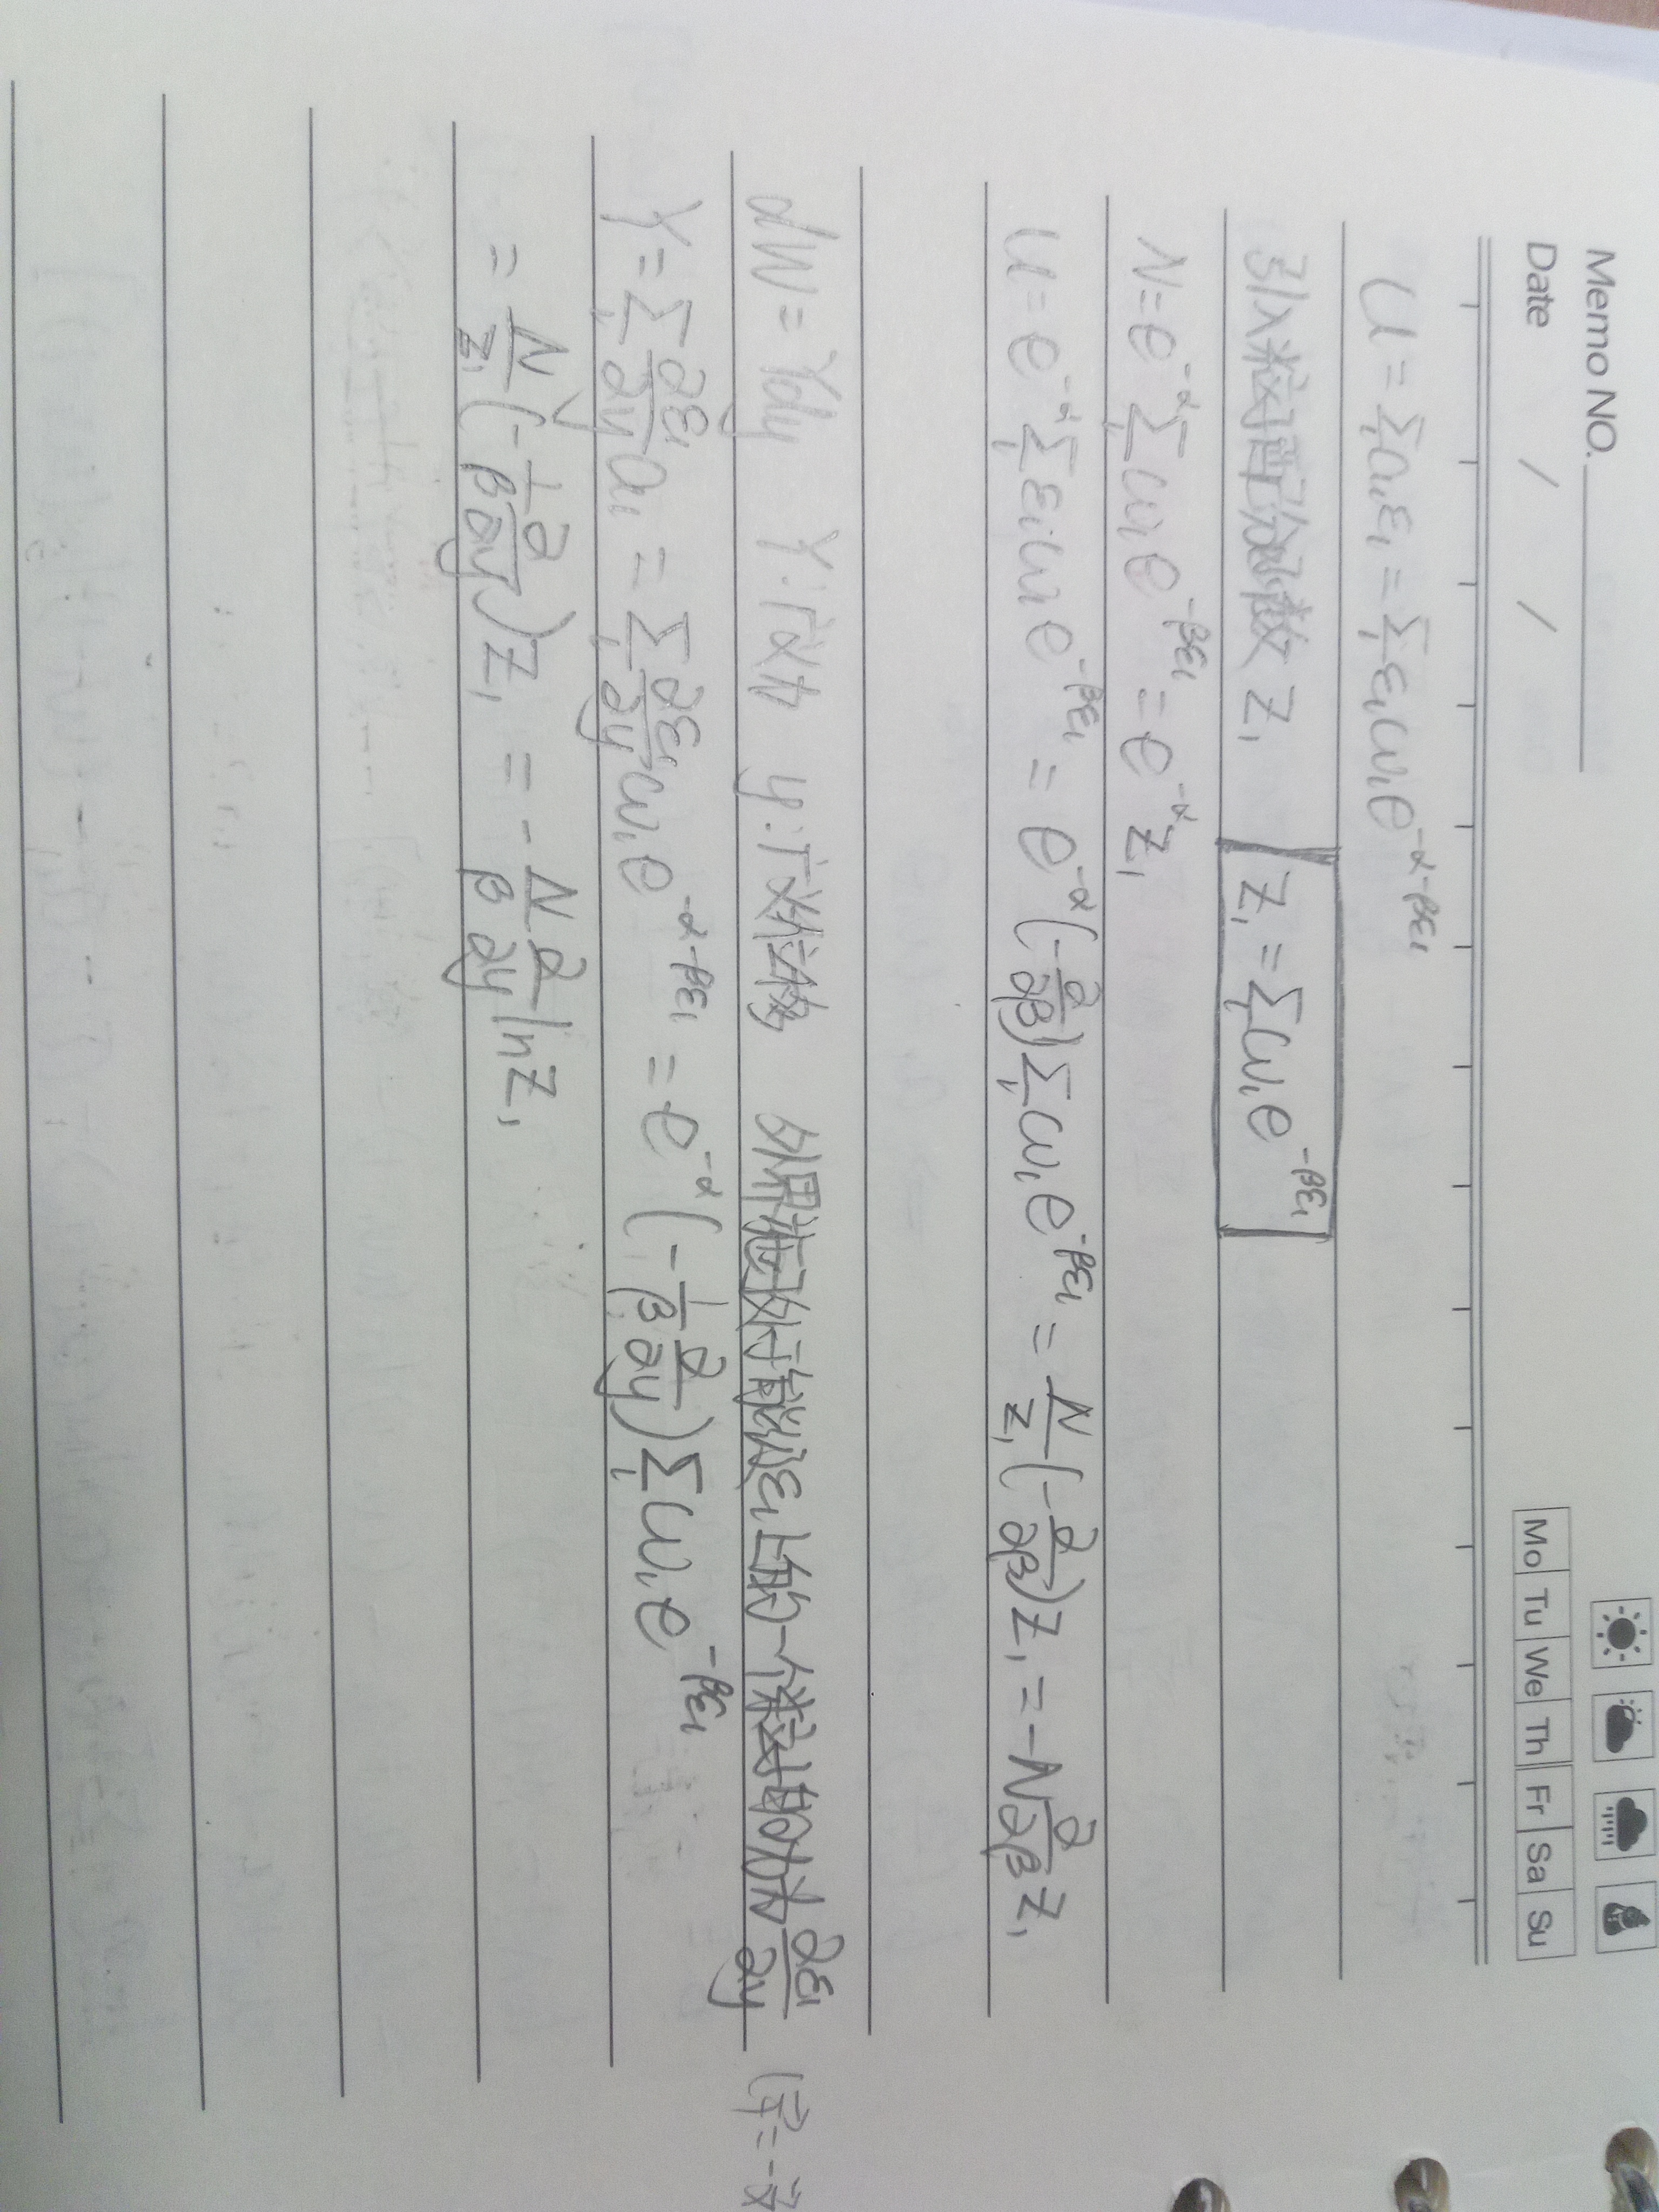 Memo NO.
Date / /
Mo Tu We Th Fr Sa Su
U = Σ_l a_l ε_l = Σ_l ε_l ω_l e^{-α-βε_l}
引入粒子配分函数 Z₁ Z₁ = Σ_l ω_l e^{-βε_l}
N = e^{-α} Σ_l ω_l e^{-βε_l} = e^{-α} Z₁
U = e^{-α} Σ_l ε_l ω_l e^{-βε_l} = e^{-α} (-∂/∂β) Σ_l ω_l e^{-βε_l} = N/Z₁ (-∂/∂β) Z₁ = -N ∂/∂β Z₁
dW = Ydy Y:广义力 y:广义坐标 外界施于处于能级ε_l上的一个粒子的力为 ∂ε_l/∂y
Y = Σ_l ∂ε_l/∂y a_l = Σ_l ∂ε_l/∂y ω_l e^{-α-βε_l} = e^{-α} (-1/β ∂/∂y) Σ_l ω_l e^{-βε_l}
= N/Z₁ (-1/β ∂/∂y) Z₁ = -N/β ∂/∂y ln Z₁